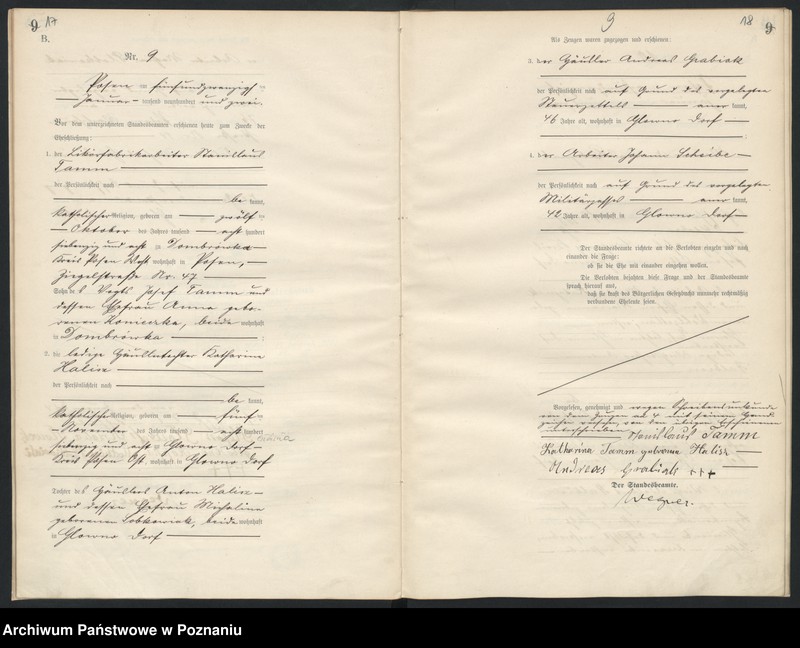 9 17
B.
Nr. 9
Posen am fünfundzwanzigsten
Januar tausend neunhundert und zwei.
Vor dem unterzeichneten Standesbeamten erschienen heute zum Zwecke der
Eheschließung:
1. der Likörfabrikarbeiter Stanislaus
Tamm
der Persönlichkeit nach
be kannt,
katholischer Religion, geboren am zwölften
Oktober des Jahres tausend acht hundert
siebenzig und acht zu Dombrówka
Kreis Posen West wohnhaft in Posen,
Ziegelstraße Nr. 47
Sohn des Vogts Josef Tamm und
dessen Ehefrau Anna gebo-
renen Konieczka, beide wohnhaft
in Dombrówka
2. die ledige Häuslertochter Katharina
Halisz
der Persönlichkeit nach
be kannt,
katholischer Religion, geboren am fünften
November des Jahres tausend acht hundert
siebenzig und acht zu Glowno Dorf
Kreis Posen Ost, wohnhaft in Glowno Dorf
Tochter des Häuslers Anton Halisz
und dessen Ehefrau Michalina
geborenen Lobkowiak, beide wohnhaft
in Glowno Dorf
9 18 9
Als Zeugen waren zugezogen und erschienen:
3. der Häusler Andreas Grabiak
der Persönlichkeit nach auf Grund des vorgelegten
Steuerzettels aner kannt,
46 Jahre alt, wohnhaft in Glowno Dorf
4. der Arbeiter Johann Scheibe
der Persönlichkeit nach auf Grund des vorgelegten
Militärpasses aner kannt,
42 Jahre alt, wohnhaft in Glowno Dorf
Der Standesbeamte richtete an die Verlobten einzeln und nach
einander die Frage:
ob sie die Ehe mit einander eingehen wollen.
Die Verlobten bejahten diese Frage und der Standesbeamte
sprach hierauf aus,
daß sie kraft des Bürgerlichen Gesetzbuchs nunmehr rechtmäßig
verbundene Eheleute seien.
Vorgelesen, genehmigt und wegen Schreibensunkunde
von dem Zeugen zu 4 mit seinem Hand-
zeichen versehen, von den übrigen Erschienenen
unterschrieben
Stanislaus Tamm
Katharina Tamm geborene Halisz
Andreas Grabiak +++
Der Standesbeamte.
Archiwum Państwowe w Poznaniu